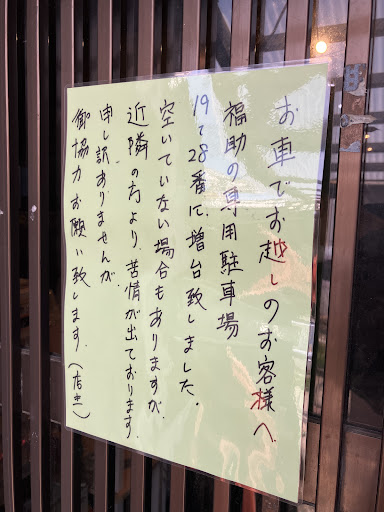 お車でお越しのお客様へ
福助の専用駐車場
19〜28番に増台致しました。
空いていない場合もありますが、
近隣の方より、苦情が出ております。
申し訳ありませんが、
御協力お願い致します。(店主)